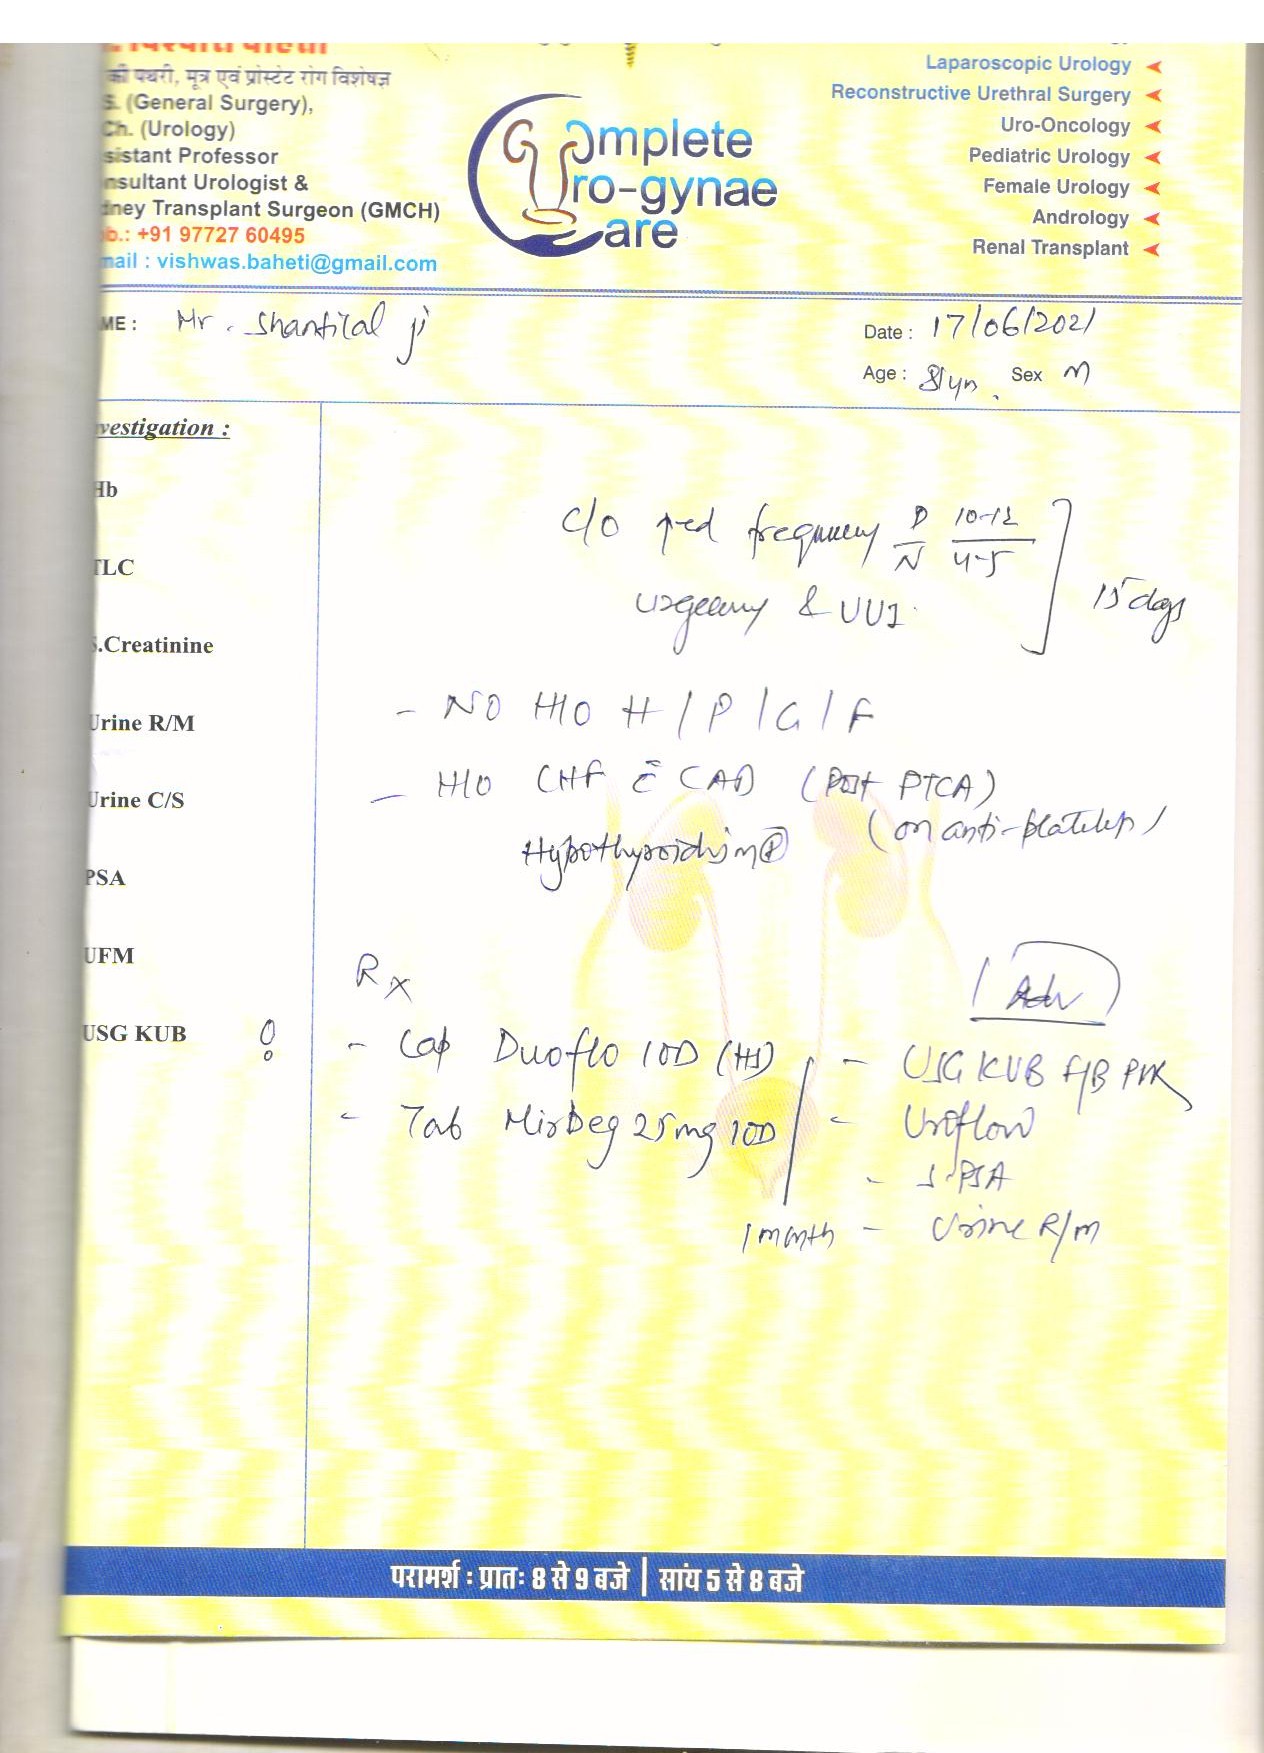 की पथरी, मूत्र एवं प्रोस्टेट रोग विशेषज्ञ
S. (General Surgery),
Ch. (Urology)
sistant Professor
nsultant Urologist &
dney Transplant Surgeon (GMCH)
b.: +91 97727 60495
mail : vishwas.baheti@gmail.com
Complete
Uro-gynae
Care
Laparoscopic Urology
Reconstructive Urethral Surgery
Uro-Oncology
Pediatric Urology
Female Urology
Andrology
Renal Transplant
ME : Mr. Shantilal ji
Date : 17/06/2021
Age : 81 yrs. Sex M
vestigation :
Hb
TLC
S.Creatinine
Urine R/M
Urine C/S
PSA
UFM
USG KUB
C/O frequency D/N 10-12/4-5
urgency & UUI
15 days
- NO H/O H/P/G/F
- H/O CHF c̄ CAD (Post PTCA)
(on anti-platelets)
Hypothyroidism
Rx
- Cap Duoflo 10D (HS)
- Tab Mirbeg 25mg 10D
1 month
Adv
- USG KUB F/B PVR
- Uroflow
- S.PSA
- Urine R/M
परामर्श : प्रातः 8 से 9 बजे | सांय 5 से 8 बजे